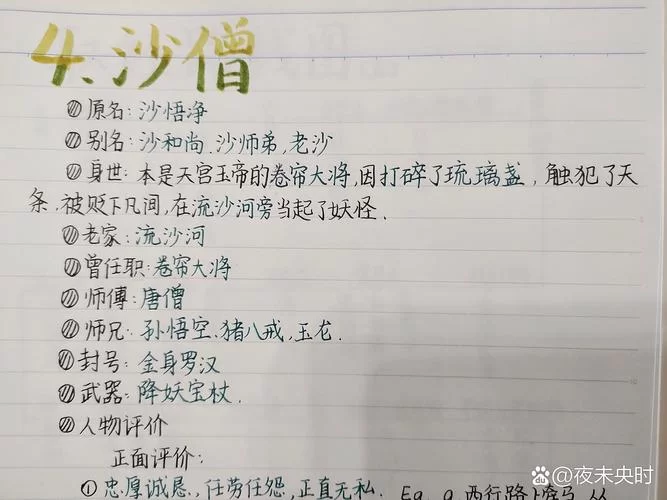 4、沙僧
原名：沙悟净
别名：沙和尚、沙师弟、老沙
身世：本是天宫玉帝的卷帘大将，因打碎了琉璃盏，触犯了天
条，被贬下凡间，在流沙河旁当起了妖怪．
老家：流沙河
曾任职：卷帘大将
师傅：唐僧
师兄：孙悟空、猪八戒，玉龙．
封号：金身罗汉
武器：降妖宝杖．
人物评价
正面评价：
① 忠厚诚恳．任劳任怨，正直无私． Eg. a.西行路上
夜未央时